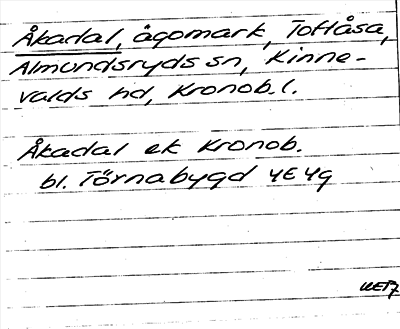 Åkadal, ägomark, Toftåsa,
Almundsryds sn, Kinne-
valds hd, Kronob. l.
Åkadal ek Kronob.
bl. Törnabygd 4E4g